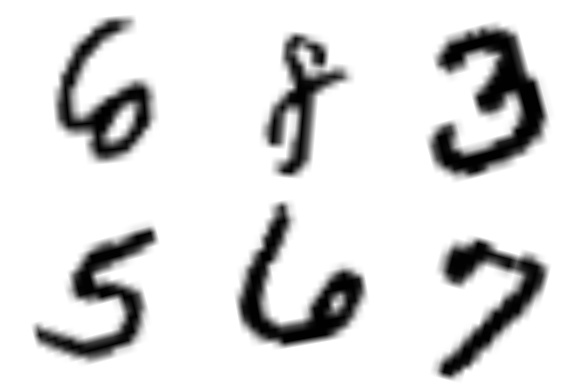 6 8 3
5 6 7